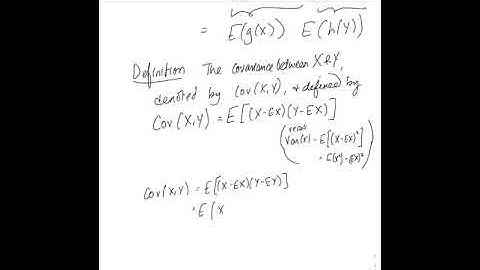 = E(g(X)) E(h(Y))
Definition The covariance between X & Y,
denoted by Cov(X,Y), is defined by
Cov(X,Y) = E[(X-EX)(Y-EY)]
recall
Var(X) = E[(X-EX)²]
= E(X²)-(EX)²
Cov(X,Y) = E[(X-EX)(Y-EY)]
= E[X